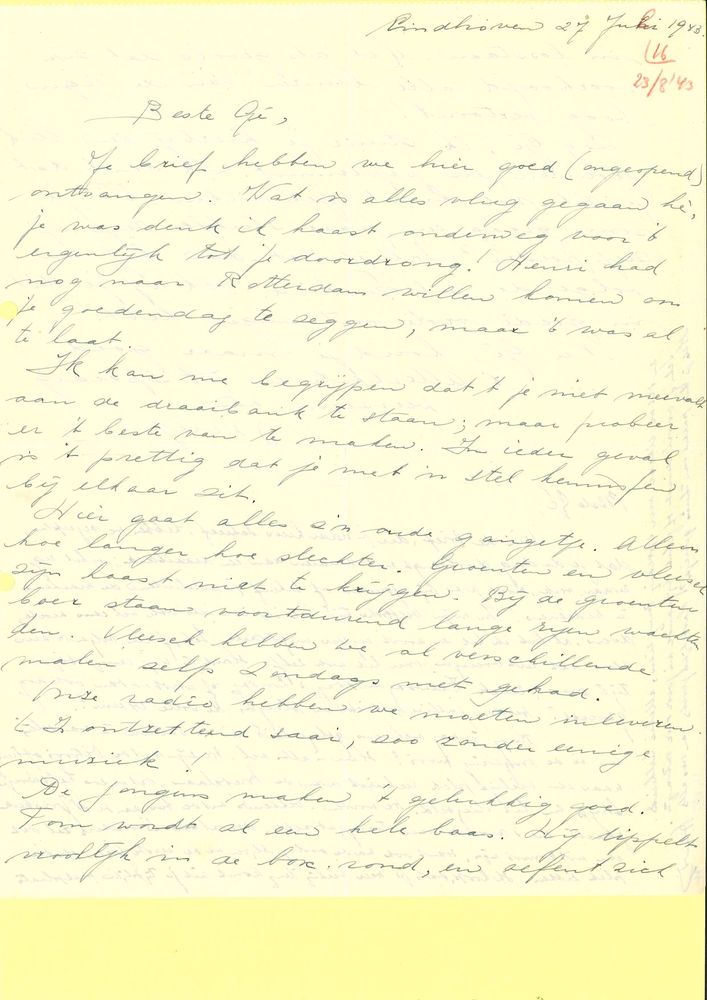 Eindhoven 27 Juli 1943.
16
23/8'43
Beste Gé,
Je brief hebben we hier goed (ongeopend)
ontvangen. Wat is alles vlug gegaan hè,
je was denk ik haast onderweg voor 't
eigenlijk tot je doordrong! Henri had
nog naar Rotterdam willen komen om
je goedendag te zeggen, maar 't was al
te laat.
Ik kan me begrijpen dat 't je niet meevalt
aan de draaibank te staan; maar probeer
er 't beste van te maken. In ieder geval
is 't prettig dat je met 'n stel kennissen
bij elkaar zit.
Hier gaat alles z'n oude gangetje. Alleen
hoe langer hoe slechter. Groenten en vleesch
zijn haast niet te krijgen. Bij de groenten
boer staan voortdurend lange rijen wachten
den. Vleesch hebben we al verschillende
malen zelfs Zondags niet gehad.
Onze radio hebben we moeten inleveren.
't Is ontzettend saai, zoo zonder eenige
muziek!
De jongens maken 't gelukkig goed.
Tom wordt al een hele baas. Hij tippelt
vroolijk in de box rond, en oefent zich